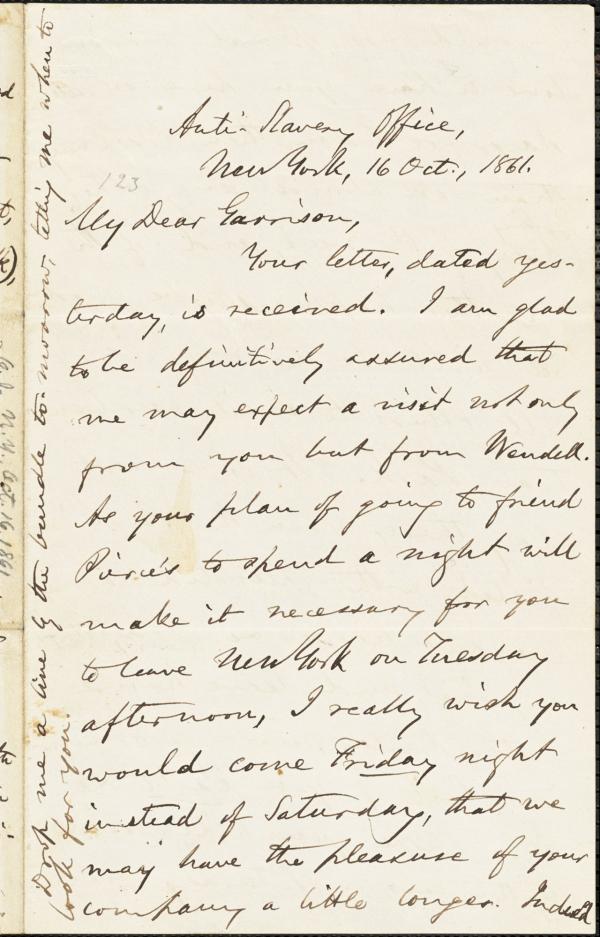 Anti-Slavery Office,
New York, 16 Oct., 1861.
123
My Dear Garrison,
Your letter, dated yes-
terday, is received. I am glad
to be definitively assured that
we may expect a visit not only
from you but from Wendell.
As your plan of going to friend
Pierce's to spend a night will
make it necessary for you
to leave New York on Tuesday
afternoon, I really wish you
would come Friday night
instead of Saturday, that we
may have the pleasure of your
company a little longer. Indeed
Drop me a line by the bundle to-morrow, telling me when to
look for you.
N.Y. Oct. 16. 1861